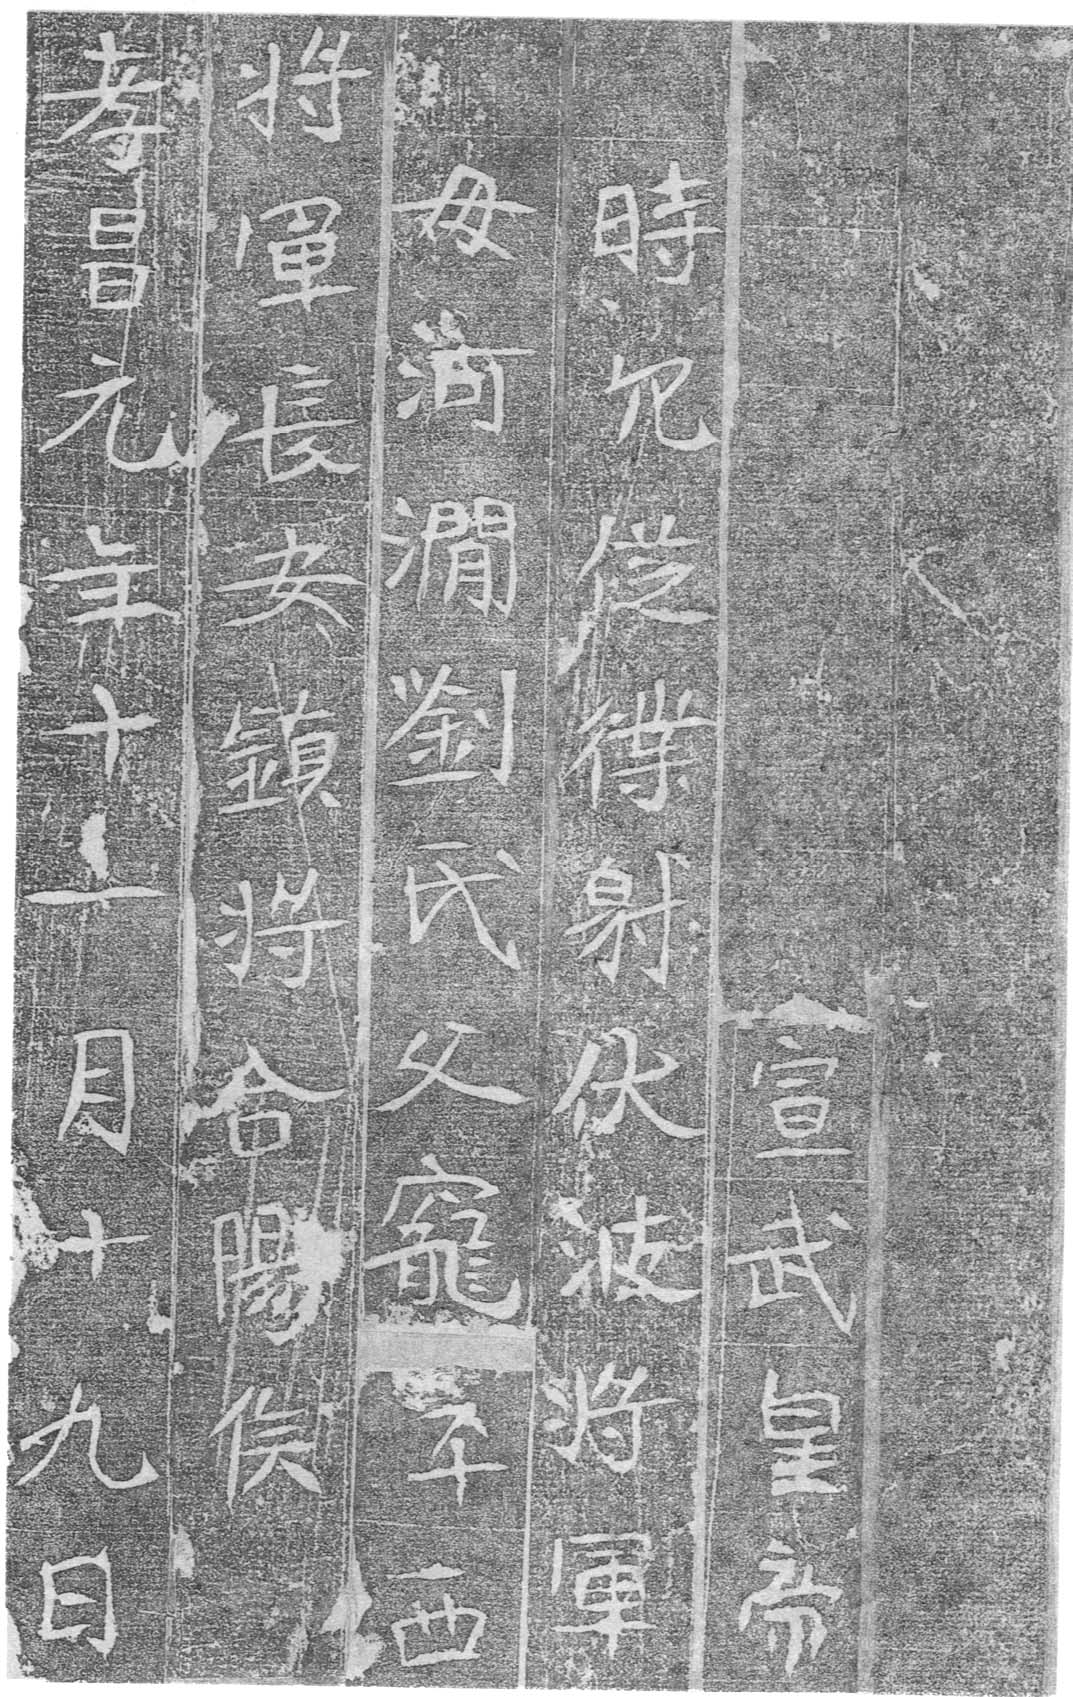 宣武皇帝
時冗從僕射伏波将軍
母河澗劉氏父寵平西
将軍長安鎮将合陽侯
孝昌元年十一月十九日